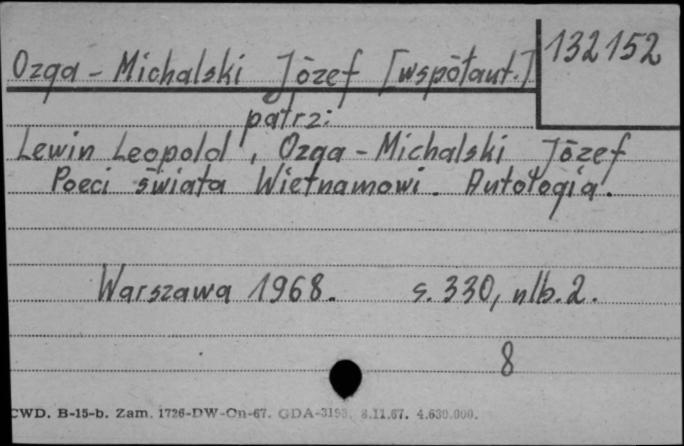 132152
Ozga - Michalski Józef [współaut.]
patrz:
Lewin Leopold, Ozga - Michalski Józef
Poeci świata Wietnamowi. Autologia.
Warszawa 1968. s. 330, nlb. 2.
8
CWD. B-15-b. Zam. 1726-DW-On-67. GDA-3193. 8.11.67. 4.630.000.